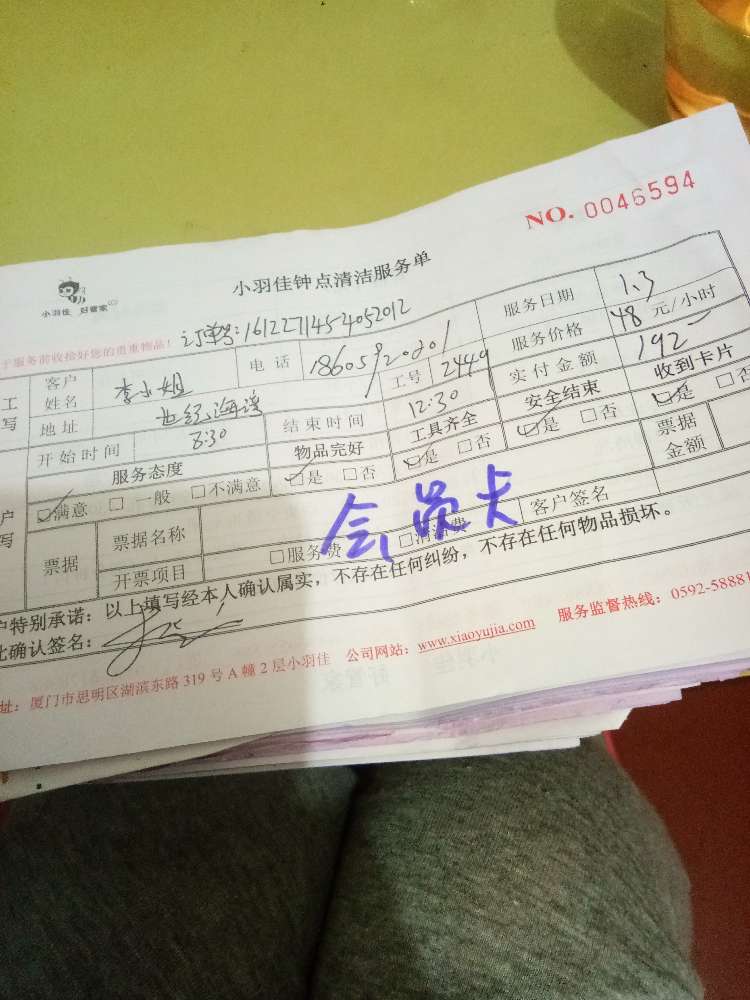 NO. 0046594
小羽佳 好管家
小羽佳钟点清洁服务单
于服务前收捡好您的贵重物品!
订单号:
服务日期 1.3
工
写
客户
姓名
李小姐
电话
工号 2449
服务价格 48 元/小时
地址
世纪海湾
实付金额 192
开始时间 8:30
结束时间 12:30
安全结束
收到卡片
服务态度
物品完好
工具齐全
☑满意 □ 一般 □不满意
☑是 □否
☑是 □否
☑是 □否
☑是 □否
户
写
票据
票据名称
票据
金额
开票项目
□服务费
会员卡
客户签名
户特别承诺:以上填写经本人确认属实,不存在任何纠纷,不存在任何物品损坏。
此确认签名:
址:厦门市思明区湖滨东路 319 号 A 幢 2 层小羽佳 公司网站:www.xiaoyujia.com 服务监督热线:0592-58881